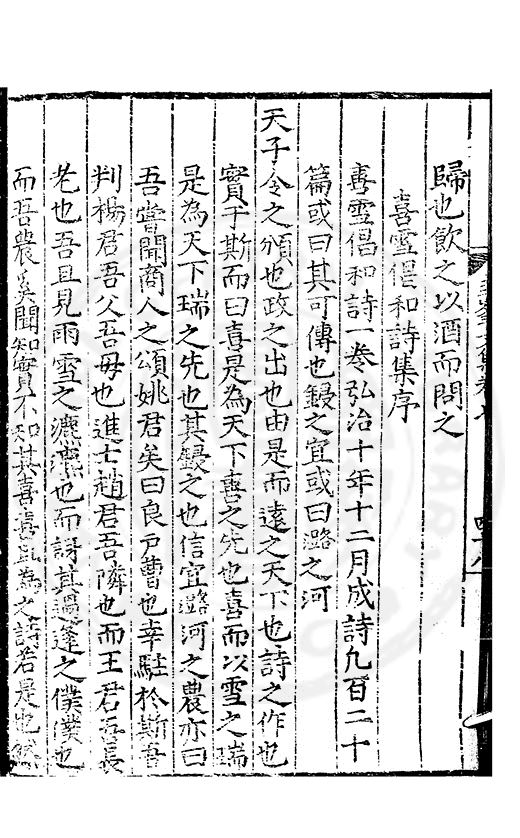 歸也飲之以酒而問之
喜雪倡和詩集序
喜雪倡和詩一卷弘治十年十二月成詩九百二十
篇或曰其可傳也鋟之宜或曰潞之河
天子令之頒也政之出也由是而遠之天下也詩之作也
實于斯而曰喜是為天下喜之先也喜而以雪之瑞
是為天下瑞之先也其鋟之也信宜潞河之農亦曰
吾嘗聞商人之頌姚君矣曰良戶曹也幸駐於斯吾
判楊君吾父吾母也進士趙君吾隣也而王君吾長
老也吾且見雨雪之瀌瀌也而訝其過逢之僕僕也
而吾農奚聞知實不知其喜喜且為之詩若是也然